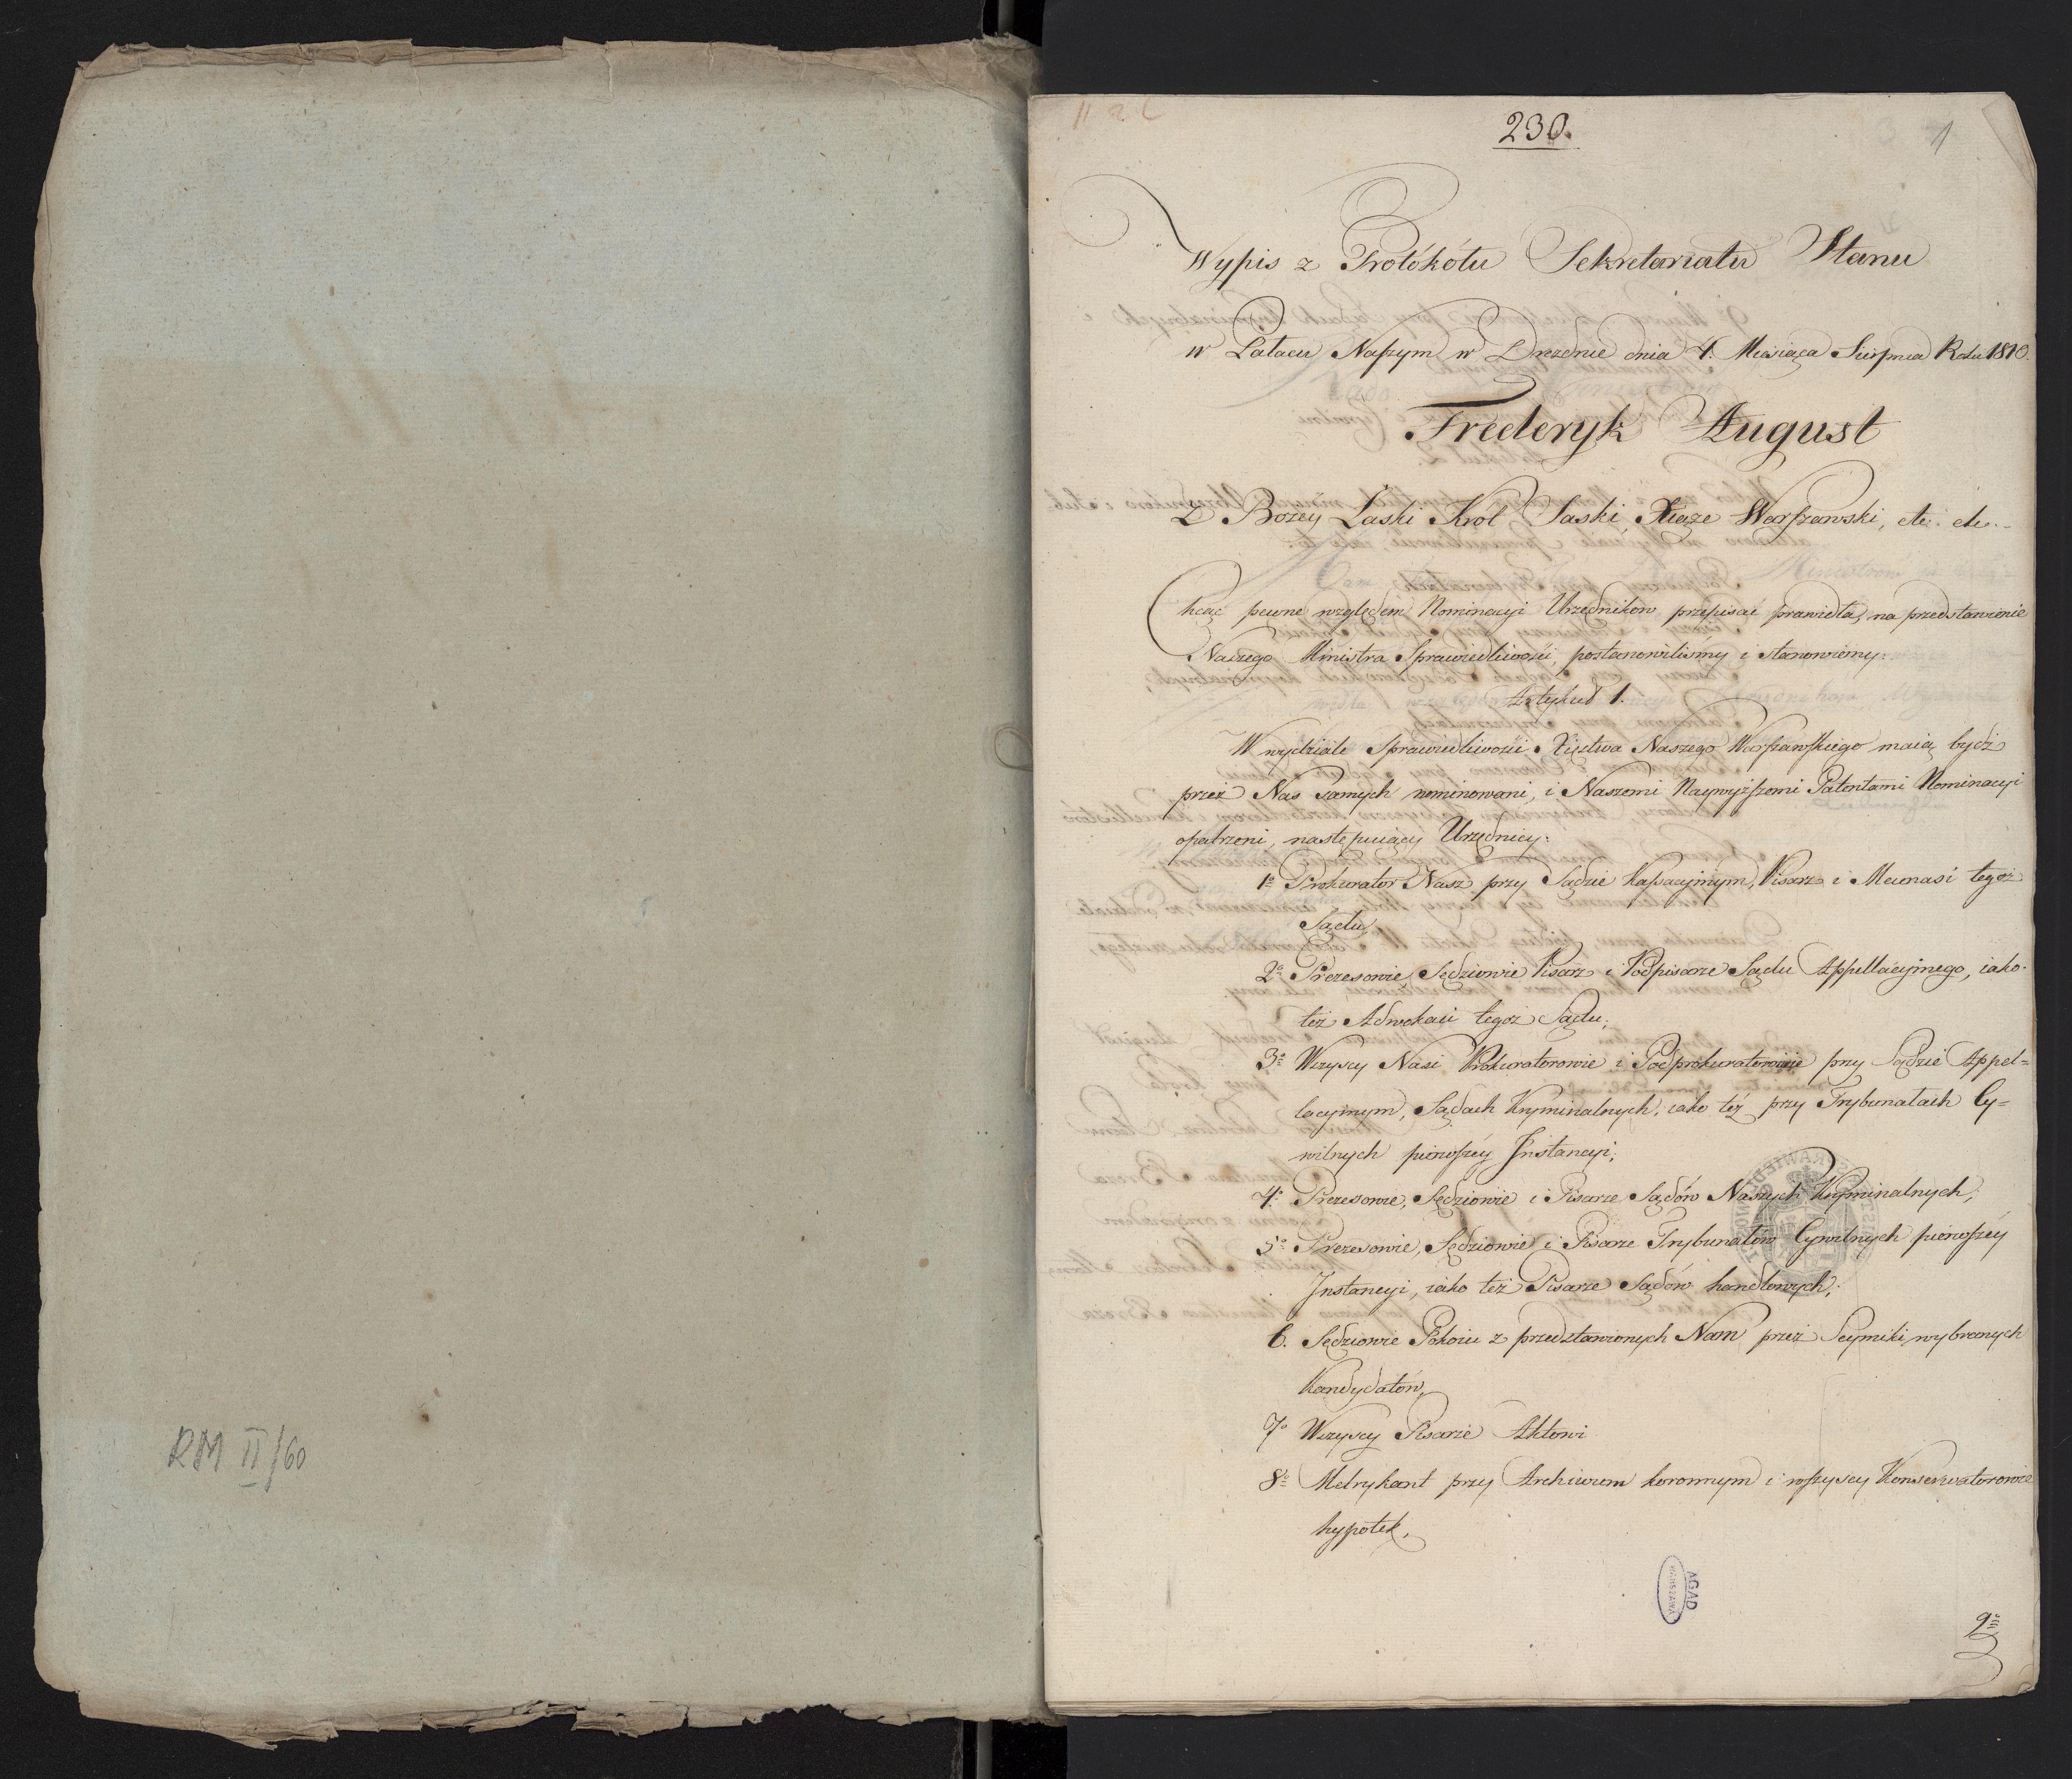 RM II/60
230.
1
Wypis z Protókółu Sekretariatu Stanu
w Pałacu Naszym w Dreznie dnia 4. Miesiąca Sierpnia Roku 1810.
Frederyk August
Z Bożey Łaski Król Saski, Xiąże Warszawski, etc. etc.
Chcąc pewne względem Nominacyi Urzędników przepisać prawidła, na przedstawienie
Naszego Ministra Sprawiedliwości, postanowiliśmy i stanowiemy:
Artykuł 1.
W wydziale Sprawiedliwości Xięztwa Naszego Warszawskiego maią bydź
przez Nas samych nominowani, i Naszemi Naywyższemi Patentami Nominacyi
opatrzeni, następuiący Urzędnicy:
1º Prokurator Nasz przy Sądzie Kassacyjnym, Pisarz i Mecenasi tegoż
Sądu,
2º Prezesowie, Sędziowie Pisarz i Podpisarze Sądu Appellacyjnego, iako
też Adwokaci tegoż Sądu;
3º Wszyscy Nasi Prokuratorowie i Podprokuratorowie przy Sądzie Appel=
lacyjnym, Sądach Kryminalnych, iako też przy Trybunałach Cy=
wilnych pierwszey Instancyi;
4º Prezesowie, Sędziowie i Pisarze Sądów Naszych Kryminalnych,
5º Prezesowie, Sędziowie i Pisarze Trybunałów Cywilnych pierwszey
Instancyi, iako też Pisarze Sądów handlowych;
6. Sędziowie Pokoiu z przedstawionych Nam przez Seymiki wybranych
Kandydatów,
7º Wszyscy Pisarze Aktowi
8º Metrykant przy Archiwum koronnym i wszyscy Konserwatorowie
hypotek,
AGAD
WARSZAWA
9º